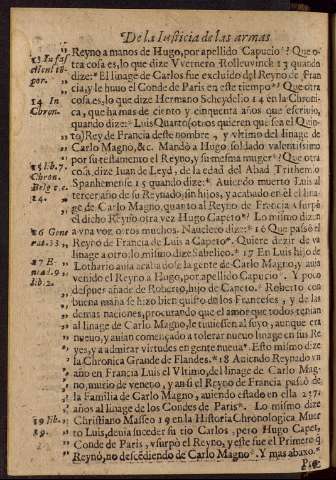 De la Iusticia de las armas
Reyno a manos de Hugo, por apellido Capucio? Que o-
tra cosa es, lo que dize Vvernero Rolleuvinck 13 quando
13 In fas
dize: El linage de Carlos fue excluido del Reyno de Fran
cia, y le huuo el Conde de Paris en este tiempo? Que otra
14 In
cosa es, lo que dize Hermano Scheydelio 14 en la Chroni-
Chron.
ca, que ha mas de ciento y cinquenta años que escriuio,
quando dize: Luis Quarto (otros quieren que sea el Quin-
to) Rey de Francia deste nombre, y vltimo del linage de
Carlo Magno, &c. Mandò a Hugo soldado valentissimo
15 lib. 7.
por su testamento el Reyno, y su mesma muger? Que otra
Chron.
cosa dize Iuan de Leyd, de la edad del Abad Trithemio
Belg c.
Spanhemense 15 quando dize: Auiendo muerto Luis al
24.
tercer año de su Reynado, sin hijos, y acabado en el lina-
ge de Carlo Magno, quanto al Reyno de Francia vsurpò
el dicho Reyno otra vez Hugo Capeto? Lo mismo dizen
16 Gene
a vna voz otros muchos. Nauclero dize: 16 Que passò el
rat. 33.
Reyno de Francia de Luis a Capeto. Quiere dezir de vn
linage a otro, lo mismo dize Sabelico. 17 En Luis hijo de
17 E
Lothario auia acabado la gente de Carlo Magno, y auia
nead. 9.
venido el Reyno a Hugo, por apellido Capucio. Y poco
lib. 2.
despues añade de Roberto, hijo de Capeto. Roberto con
buena maña se hizo bien quisto de los Franceses, y de las
demas naciones, procurando que el amor que todos tenian
al linage de Carlo Magno, le tuuiessen al suyo, aunque era
nueuo, y auian començado a tolerar nueuo linage en sus Re
yes, y a admirar virtudes en gente nueua. Esto mismo dize
la Chronica Grande de Flandes. 18 Auiendo Reynado vn
año en Francia Luis el Vltimo, del linage de Carlo Mag-
no, murio de veneno, y ansi el Reyno de Francia passò de
la Familia de Carlo Magno, auiendo estado en ella 237.
años al linage de los Condes de Paris. Lo mismo dize
19 lib.
Christiano Masseo 19 en la Historia Chronologica Muer
to Luis, deuia suceder su tio Carlos, pero Hugo Capet,
Conde de Paris, vsurpò el Reyno, y este fue el Primero q̃
Reynò, no descẽdiendo de Carlo Magno. Y mas abaxo.